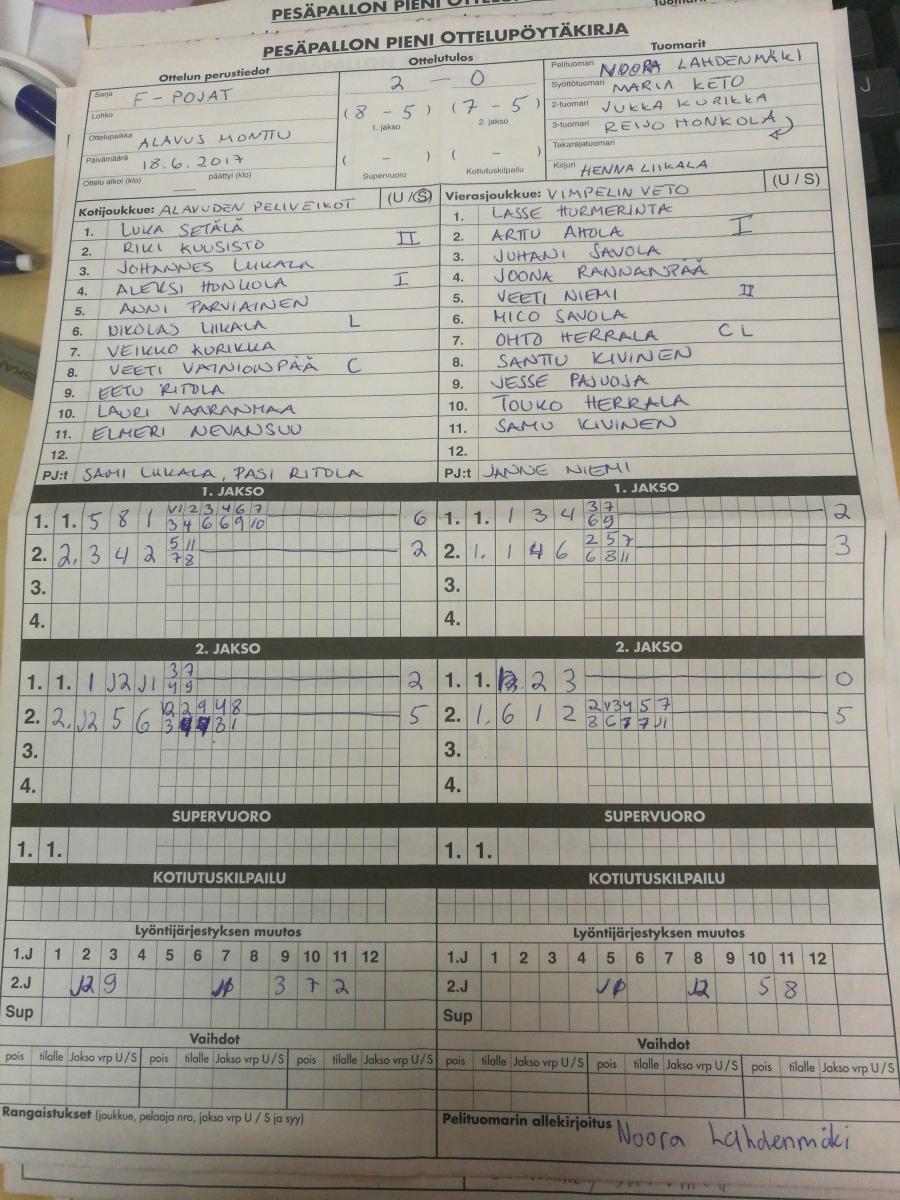 PESÄPALLON PIENI OTTELUPÖYTÄKIRJA
Ottelun perustiedot Ottelutulos Tuomarit
Sarja F-POJAT 2 – 0 Pelituomari NOORA LAHDENMÄKI
Lohko (8 – 5) (7 – 5) Syöttötuomari MARIA KETO
1. jakso 2. jakso 2-tuomari JUKKA KURIKKA
Ottelupaikka ALAVUS MONTTU 3-tuomari REIJO HONKOLA
Päivämäärä 18.6.2017 ( – ) ( – ) Takarajatuomari
Ottelu alkoi (klo) päättyi (klo) Supervuoro Kotiutuskilpailu Kirjuri HENNA LIIKALA
Kotijoukkue: ALAVUDEN PELIVEIKOT (U / S) Vierasjoukkue: VIMPELIN VETO (U / S)
1. LUKA SETÄLÄ 1. LASSE HURMERINTA
2. RIKI KUUSISTO II 2. ARTTU AHOLA I
3. JOHANNES LIIKALA 3. JUHANI SAVOLA
4. ALEKSI HONKOLA I 4. JOONA RANNANPÄÄ
5. ANNI PARVIAINEN 5. VEETI NIEMI II
6. NIKOLAS LIIKALA L 6. MICO SAVOLA
7. VEIKKO KURIKKA 7. OHTO HERRALA C L
8. VEETI VAINIONPÄÄ C 8. SANTTU KIVINEN
9. EETU RITOLA 9. JESSE PAJUOJA
10. LAURI VAARANMAA 10. TOUKO HERRALA
11. ELMERI NEVANSUU 11. SAMU KIVINEN
12. 12.
PJ:t SAMI LIIKALA, PASI RITOLA PJ:t JANNE NIEMI
1. JAKSO 1. JAKSO
V1 2 3 4 6 7 3 7
1. 1. 5 8 1 3 4 6 6 9 10 6 1. 1. 1 3 4 6 9 2
5 11 2 5 7
2. 2. 3 4 2 7 8 2 2. 1. 1 4 6 6 8 11 3
3. 3.
4. 4.
2. JAKSO 2. JAKSO
3 7
1. 1. 1 J2 J1 4 9 2 1. 1. 2 3 0
2. 2. J2 5 6 5 2. 1. 6 1 2 5
3. 3.
4. 4.
SUPERVUORO SUPERVUORO
1. 1. 1. 1.
KOTIUTUSKILPAILU KOTIUTUSKILPAILU
Lyöntijärjestyksen muutos Lyöntijärjestyksen muutos
1.J 1 2 3 4 5 6 7 8 9 10 11 12 1.J 1 2 3 4 5 6 7 8 9 10 11 12
2.J J2 9 J1 3 7 2 2.J J1 J2 5 8
Sup Sup
Vaihdot Vaihdot
pois tilalle Jakso vrp U / S pois tilalle Jakso vrp U / S pois tilalle Jakso vrp U / S pois tilalle Jakso vrp U / S pois tilalle Jakso vrp U / S pois tilalle Jakso vrp U / S
Rangaistukset (joukkue, pelaaja nro, jakso vrp U / S ja syy) Pelituomarin allekirjoitus Noora Lahdenmäki